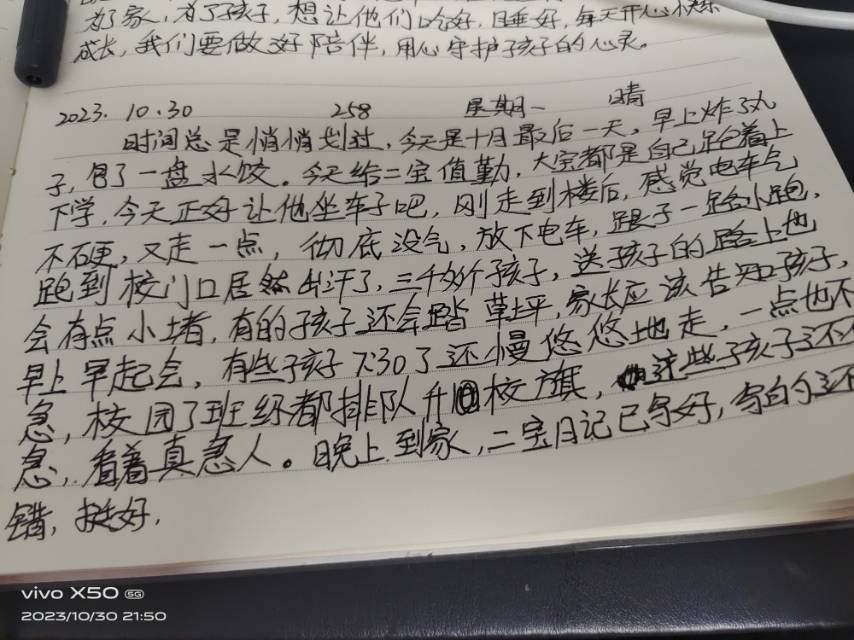 为了家，为了孩子，想让他们吃好，睡好，每天开心快乐
成长，我们要做好陪伴，用心守护孩子的心灵。
2023. 10.30 258 星期一 晴
时间总是悄悄划过，今天是十月最后一天，早上炸了丸
子，包了一盘水饺。今天给二宝值勤，大宝都是自己跑着上
下学，今天正好让他坐车子吧，刚走到楼后，感觉电车气
不硬，又走一点，彻底没气，放下电车，跟子一路小跑，
跑到校门口居然出汗了，三千多个孩子，送孩子的路上也
会有点小堵，有的孩子还会踏草坪，家长应该告知孩子，
早上早起会，有些孩子7:30了还慢悠悠地走，一点也不
急，校园了班级都排队升校旗，这些孩子还不
急，看着真急人。晚上到家，二宝日记已写好，写的还
错，挺好，
vivo X50 5G
2023/10/30 21:50